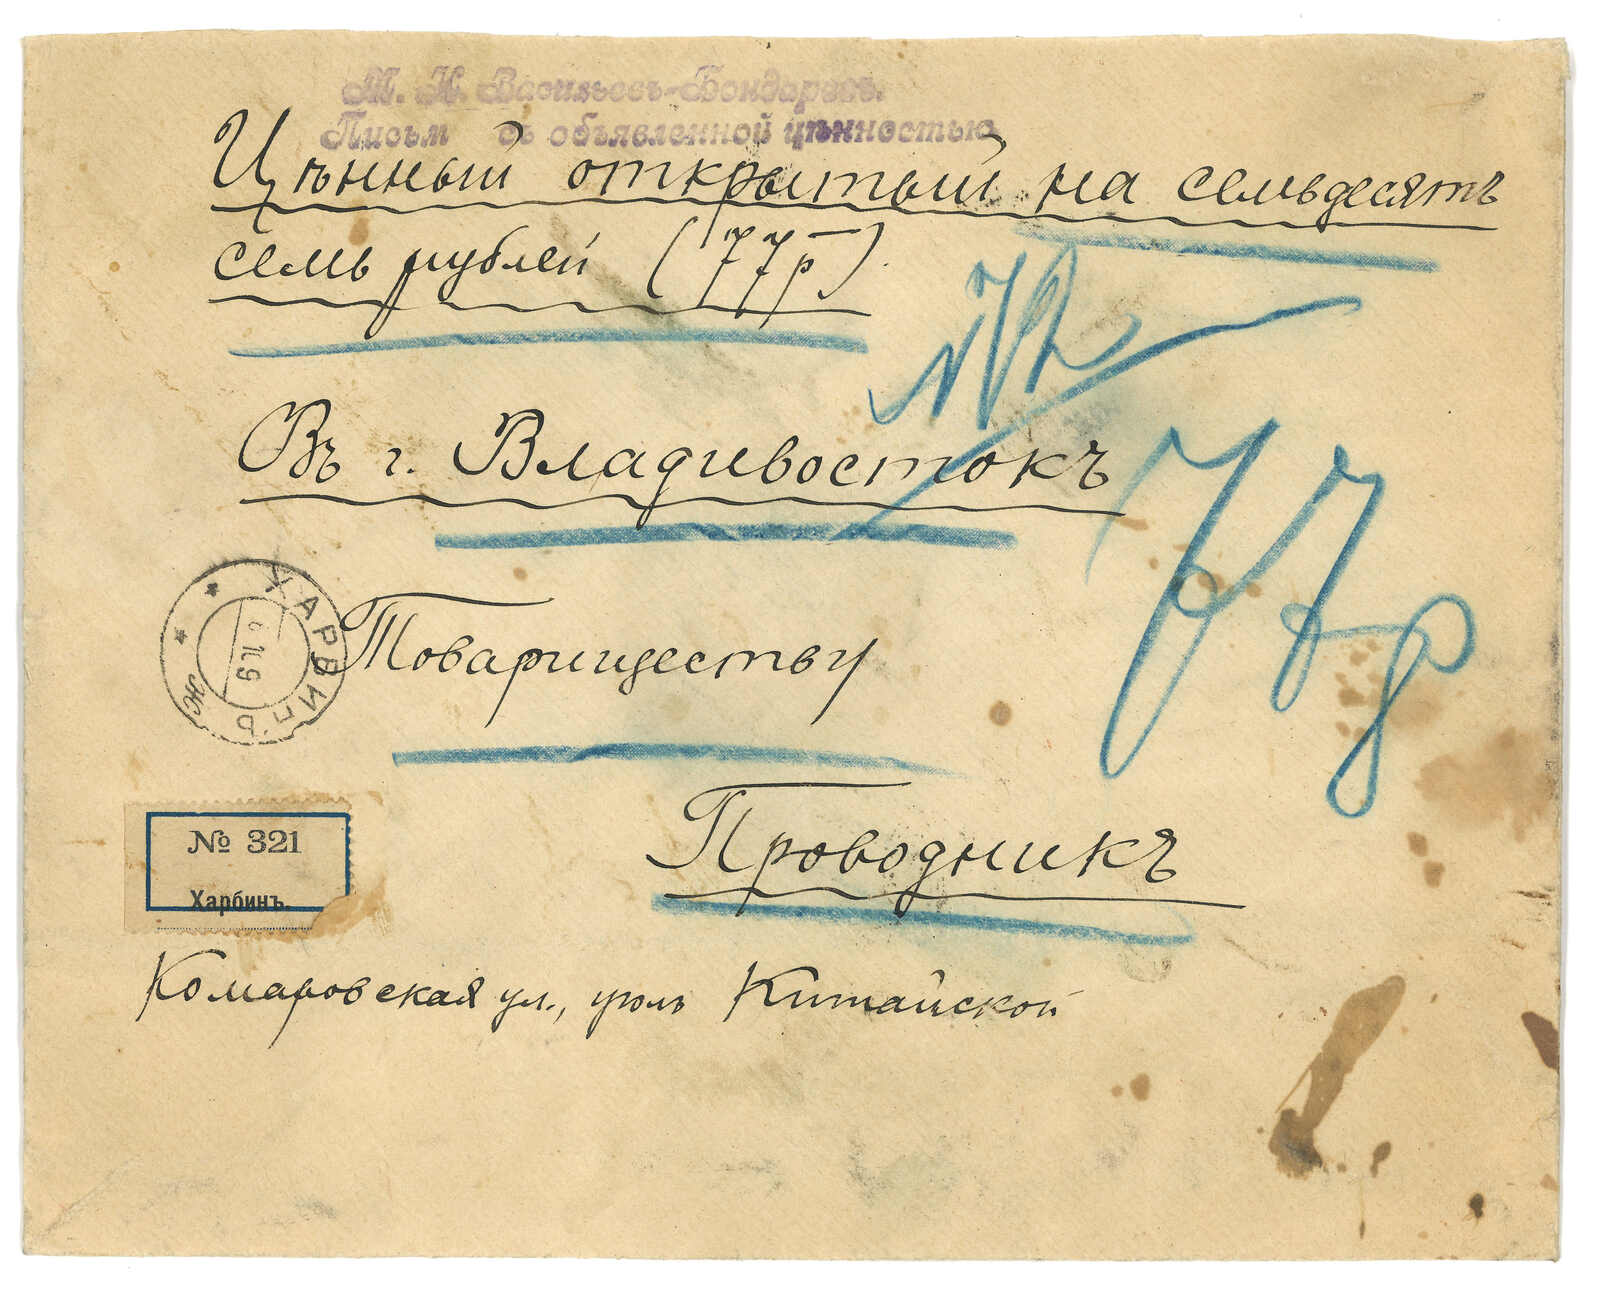 М. Н. Васильевъ-Бондаревъ.
Письм съ объявленной цѣнностью
Цѣнный открытый на семьдесятъ
семь рублей (77р)
Въ г. Владивостокъ
77р
ХАРБИНЪ
Ж
Товариществу
Проводникъ
№ 321
Харбинъ.
Комаровская ул., уголъ Китайской